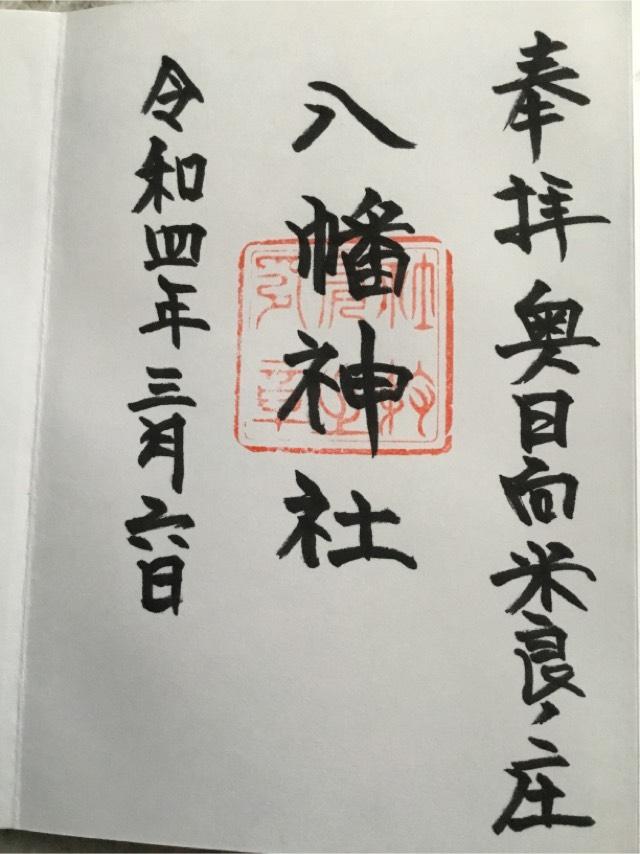 奉拝 奥日向米良ノ庄
八幡神社
令和四年三月六日